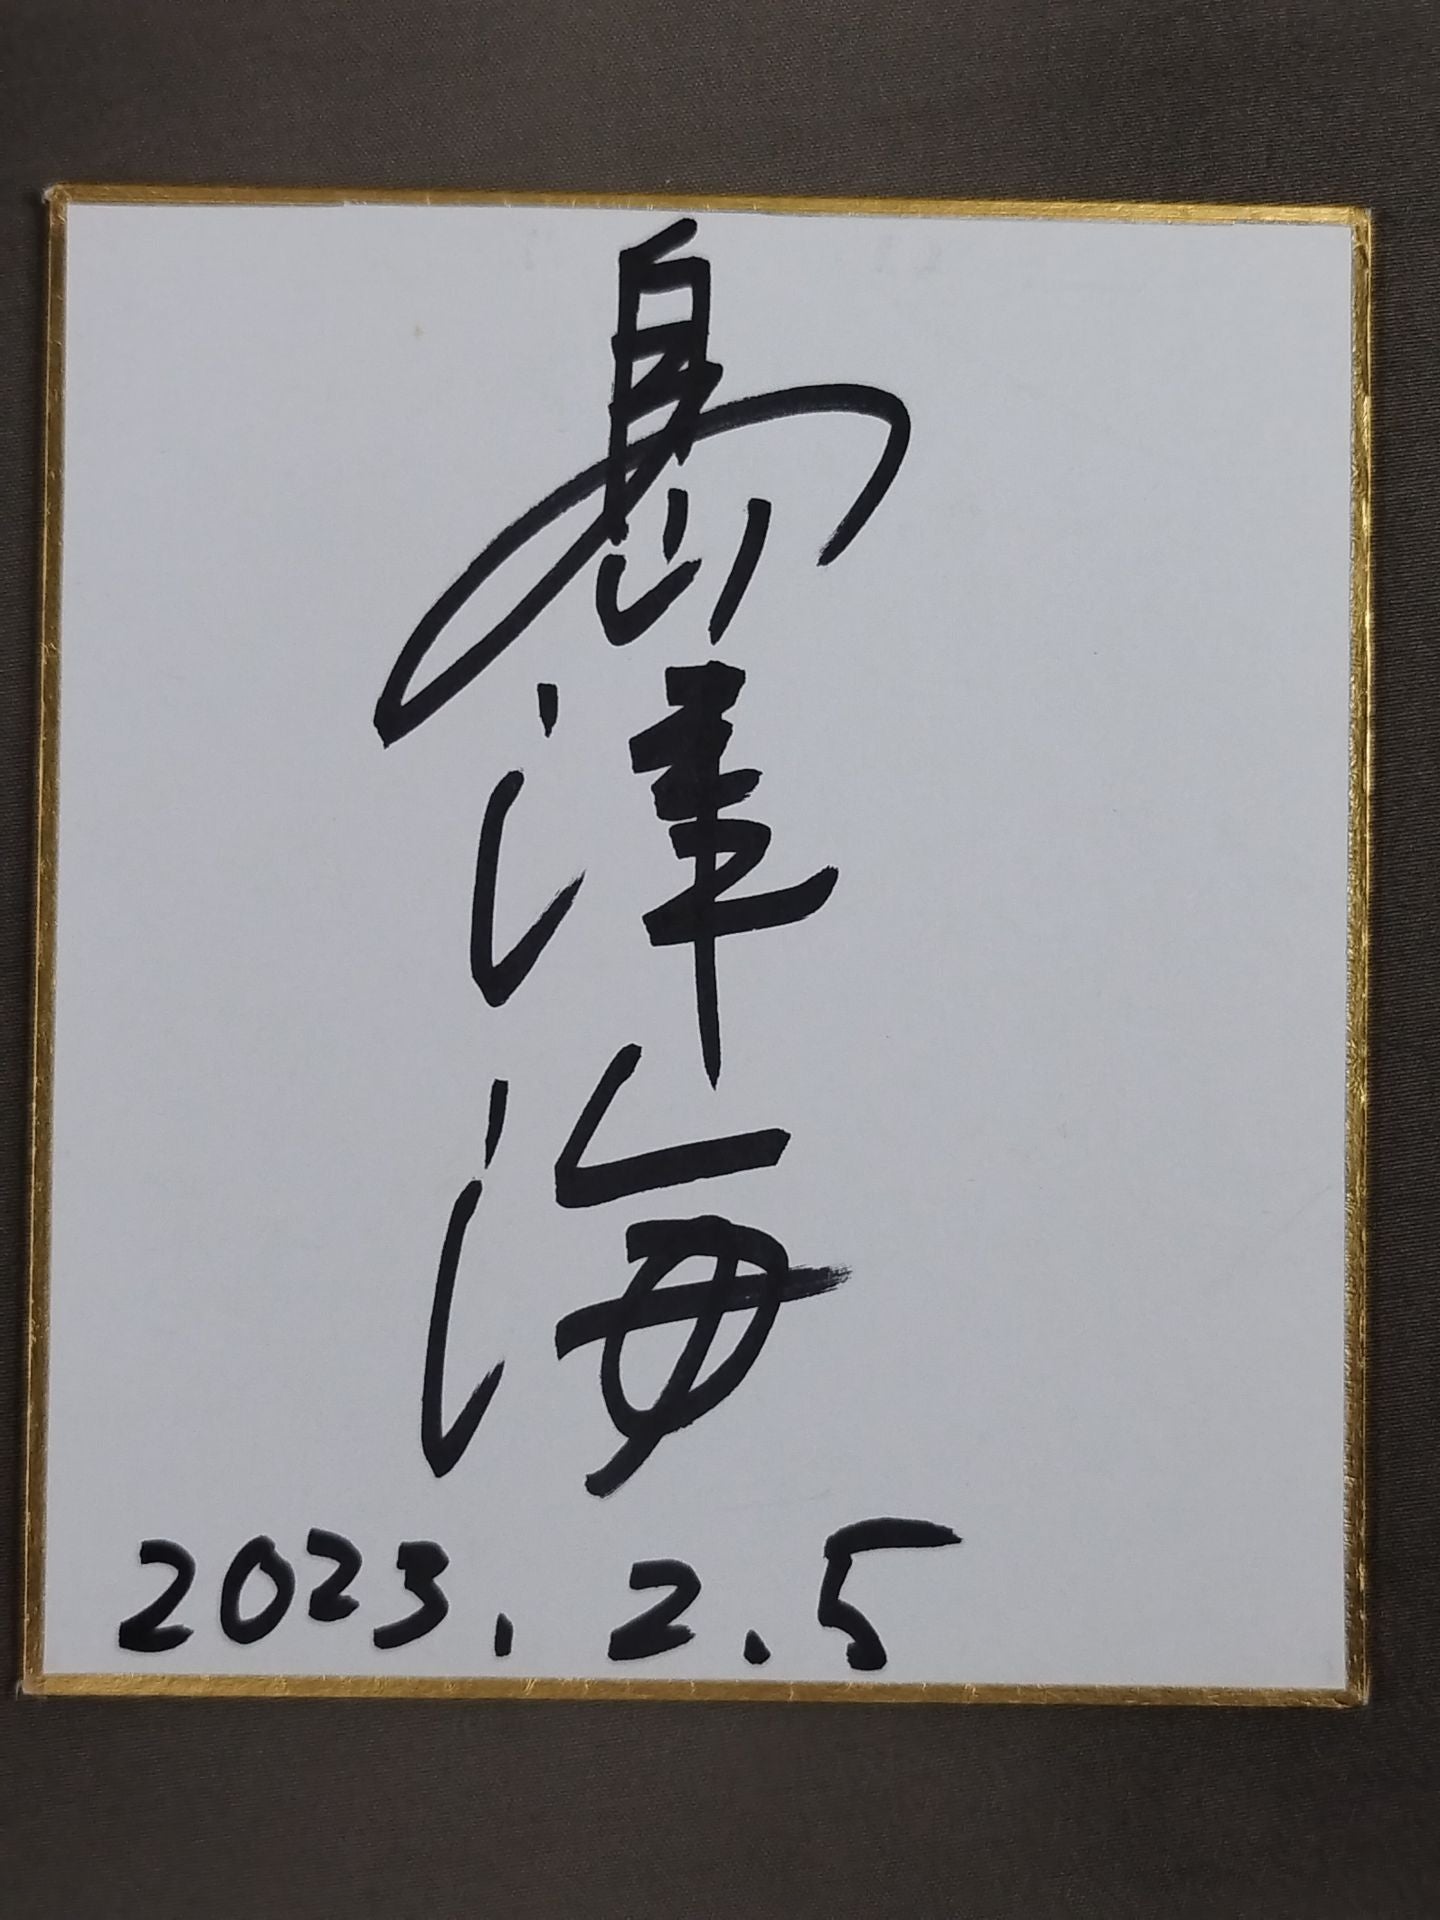 島津海
2023.2.5